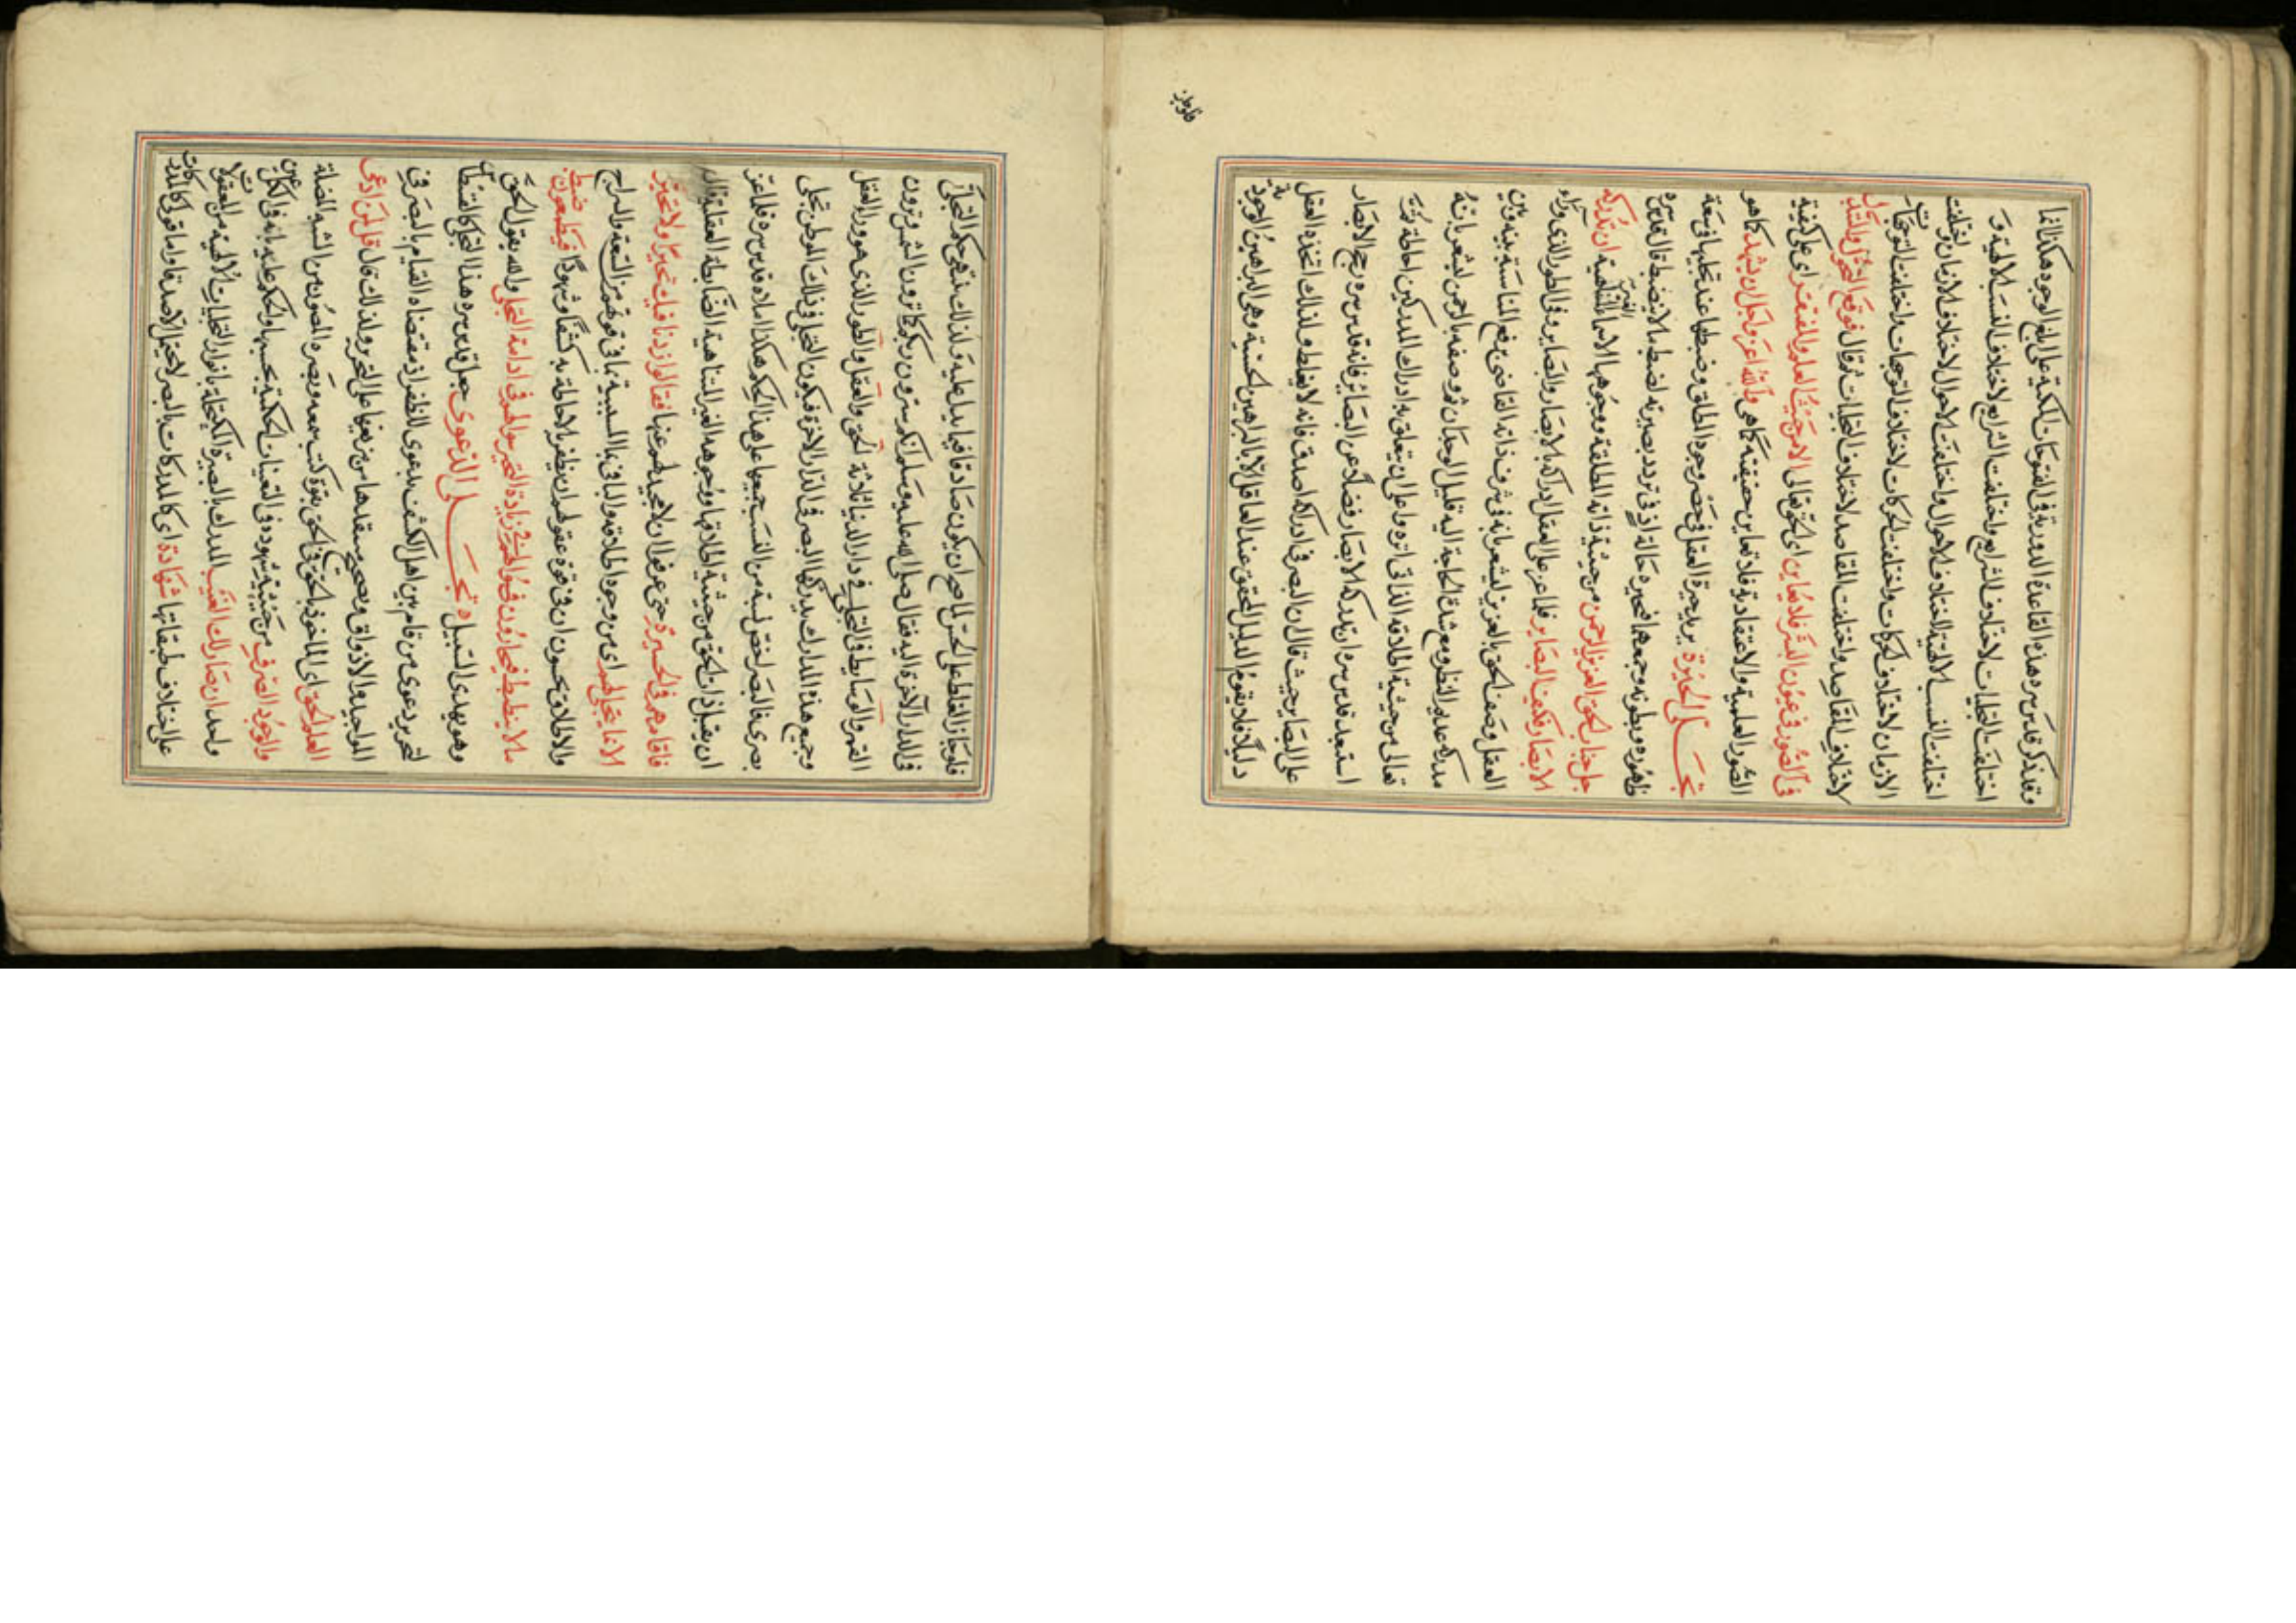 وقد ذكر قدس سره هذه القاعدة الدورية في الفتوحات المكية على ابلغ الوجوه هكذا انما
اختلفت التجليات لاختلاف الشرايع واختلفت الشرايع لاختلاف النسب الالهية و
اختلفت النسب الالهية لاختلاف الاحوال واختلفت الاحوال لاختلاف الازمان واختلفت
الازمان لاختلاف الحركات واختلفت الحركات لاختلاف التوجهات واختلفت التوجهات
لاختلاف المقاصد واختلفت المقاصد لاختلاف التجليات ثم قال فوقع التحول والتبدل
في الصور في عيون البشر فلا يعاين اي الحق تعالى الا من حيث العلم والمعتقد اي على كيفية
الصور العلمية والاعتقادية فلا تعاين حقيقته كما هي والله اعز واجل ان يشهد كما هو
تجلى الحيرة يريد حيرة العقل في حصر وجوه المطلق وضبطها عند تجليها في سعة
ظهوره وبطونه وجمعهما فحيره حالة اذ في تردد بصيرته لضبط ما لا ينضبط قال قدس سره
جل جناب الحق العزيز الرحمن من حيثية ذاته المطلقة ووجوهها الاحمائية الغير المتناهية ان تدركه
الابصار فكيف البصاير فلما عز على العقل ادراكه بالابصار والبصاير في الطور الذي وراء
العقل وصف الحق بالعزيز ليشعر بانه في شرف ذاته القاضي برفع المناسبة بينه وبين
مدركه عديم النظر ومع شدة الحاجة اليه قليل الوجدان ثم وصفه بالرحمن ليشعر بانه
تعالى من حيثية اطلاقه الذاتي انزه واعلى ان يتعلق به ادراك المدركين احاطة ثمت
استبعد قدس سره ان تدركه الابصار فضلا عن البصائر فانه قدس سره يرجح الابصار
على البصاير حيث قال ان البصر في ادراكه اصدق فانه لا يغلط ولذلك اتخذه العقل
دليلا فلا يقوم الدليل المحقق عند العاقل الا بالبراهين الحسية وهي البراهين الوجودية
فلو جاز
فلو جاز الغلط على الحس لما صح ان يكون صادقا فيما يدل عليه ولذلك تنتهي حكم التجلي
في الدار الآخرة اليه فقال صلى الله عليه وسلم انكم سترون ربكم كما ترون الشمس وترون
القمر والوسايط في التجلي في دار الدنيا ثلاثة الحق والعقل والطور الذي هو وراء العقل
وجميع هذه المدارك يدركها البصر في الدار الآخرة فيكون التجلي في ذلك الموطن تجلى
بصري فالبصر اخص نسبة من النسب جميعها على هذا الحكم هكذا املاه قدس سره فلما عز
ان يقبل ذات الحق من حيثية اطلاقها ووجوهها الغير المتناهية الضابطة العقلية قال
فاقامهم في الحيرة حتى عرفوا ان لا محيد لهم عنها فقالوا زدنا فيك تحيرا ولا تحير
الا بما يتجلى لهم اي من وجوه اطلاقه والباء في بما السببية بما في قوتهم من السعة والسراح
والاطلاق يحسبون ان في قوة عقولهم ان يظفر بالاحاطة به كشفا وشهودا فيطمعون ضبط
ما لا ينضبط فيحارون فسؤالهم في زيادة التحير سؤالهم في ادامة التجلي والله يقول الحق
وهو يهدى السبيل تجلى الدعوى جعل قدس سره هذا التجلي كالقسطاس
لتحرير دعوى من قام بين اهل الكشف بدعوى الظفر اذ مقتضاه القيام بالبصر في
المواجيد والاذواق وتصحيح منتقدها من مزيفها على التحرير ولذلك قال قل لمن ادعى
العلم الحق اي الماخوذ بالحق في الحق بقوة كنت سمعه وبصره المصون من الشبه المضلة
والوجود الصرف من حيثية شهوده في التعينات الحكمية بحسبها والحكم عليه بانه في كل عين
واحد ان صار لك الغيب المدرك بالبصيرة المكتحلة بانوار التجليات الالهية من المعقولات
على اختلاف طبقاتها شهادة اي كالمدركات بالبصر لا يحتمل الا صدقا واما قولي كالمدركات